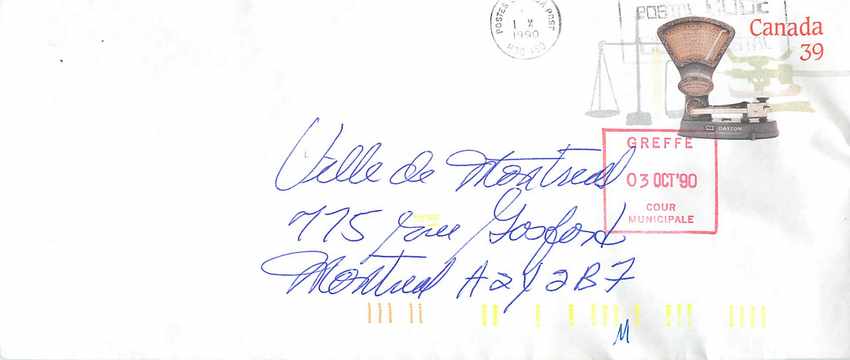 POSTES CANADA POST
1 X
1990
POSTAL CODE
POSTAL
Canada
39
DAYTON
GREFFE
03 OCT'90
COUR
MUNICIPALE
Ville de Montreal
775 rue Gosford
Montreal A2Y2B7
M